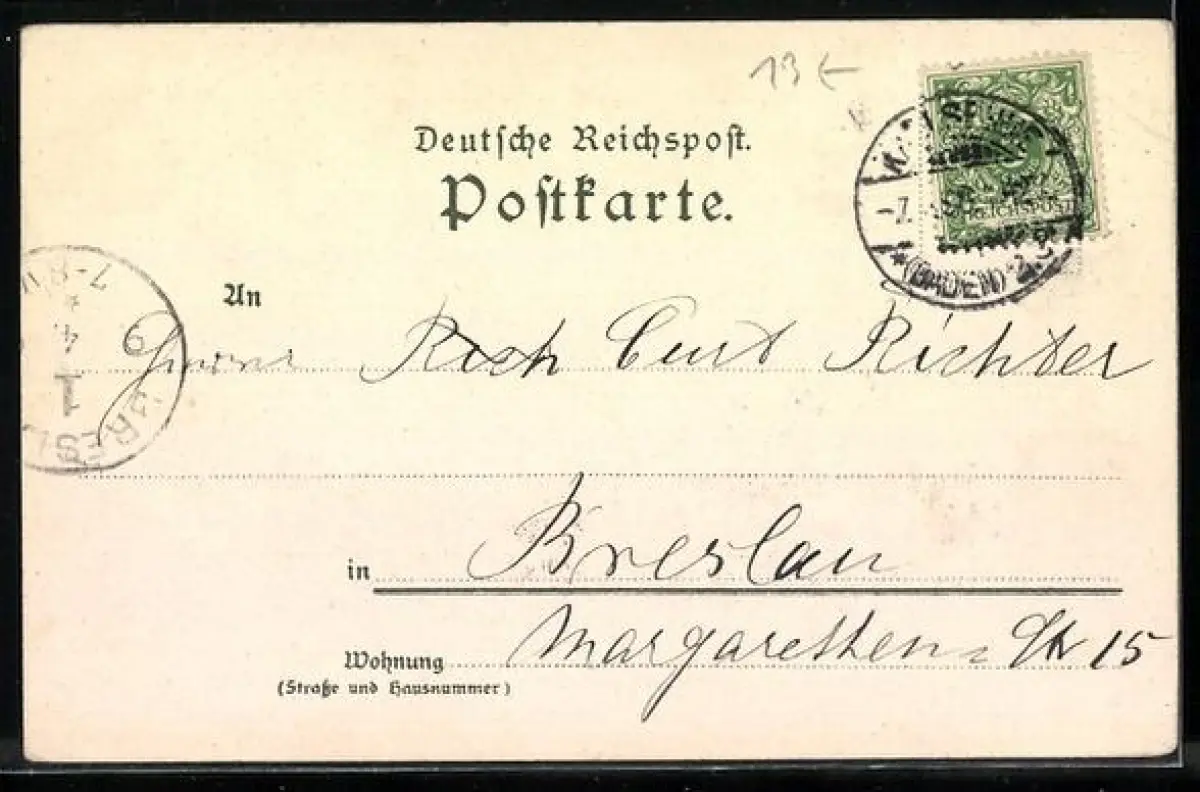 13 €
Deutsche Reichspost.
Postkarte.
REICHSPOST
(BADEN)
An
Herrn Rich Curt Richter
BRESL
in Breslau
Wohnung Margarethen-Str 15
(Straße und Hausnummer)